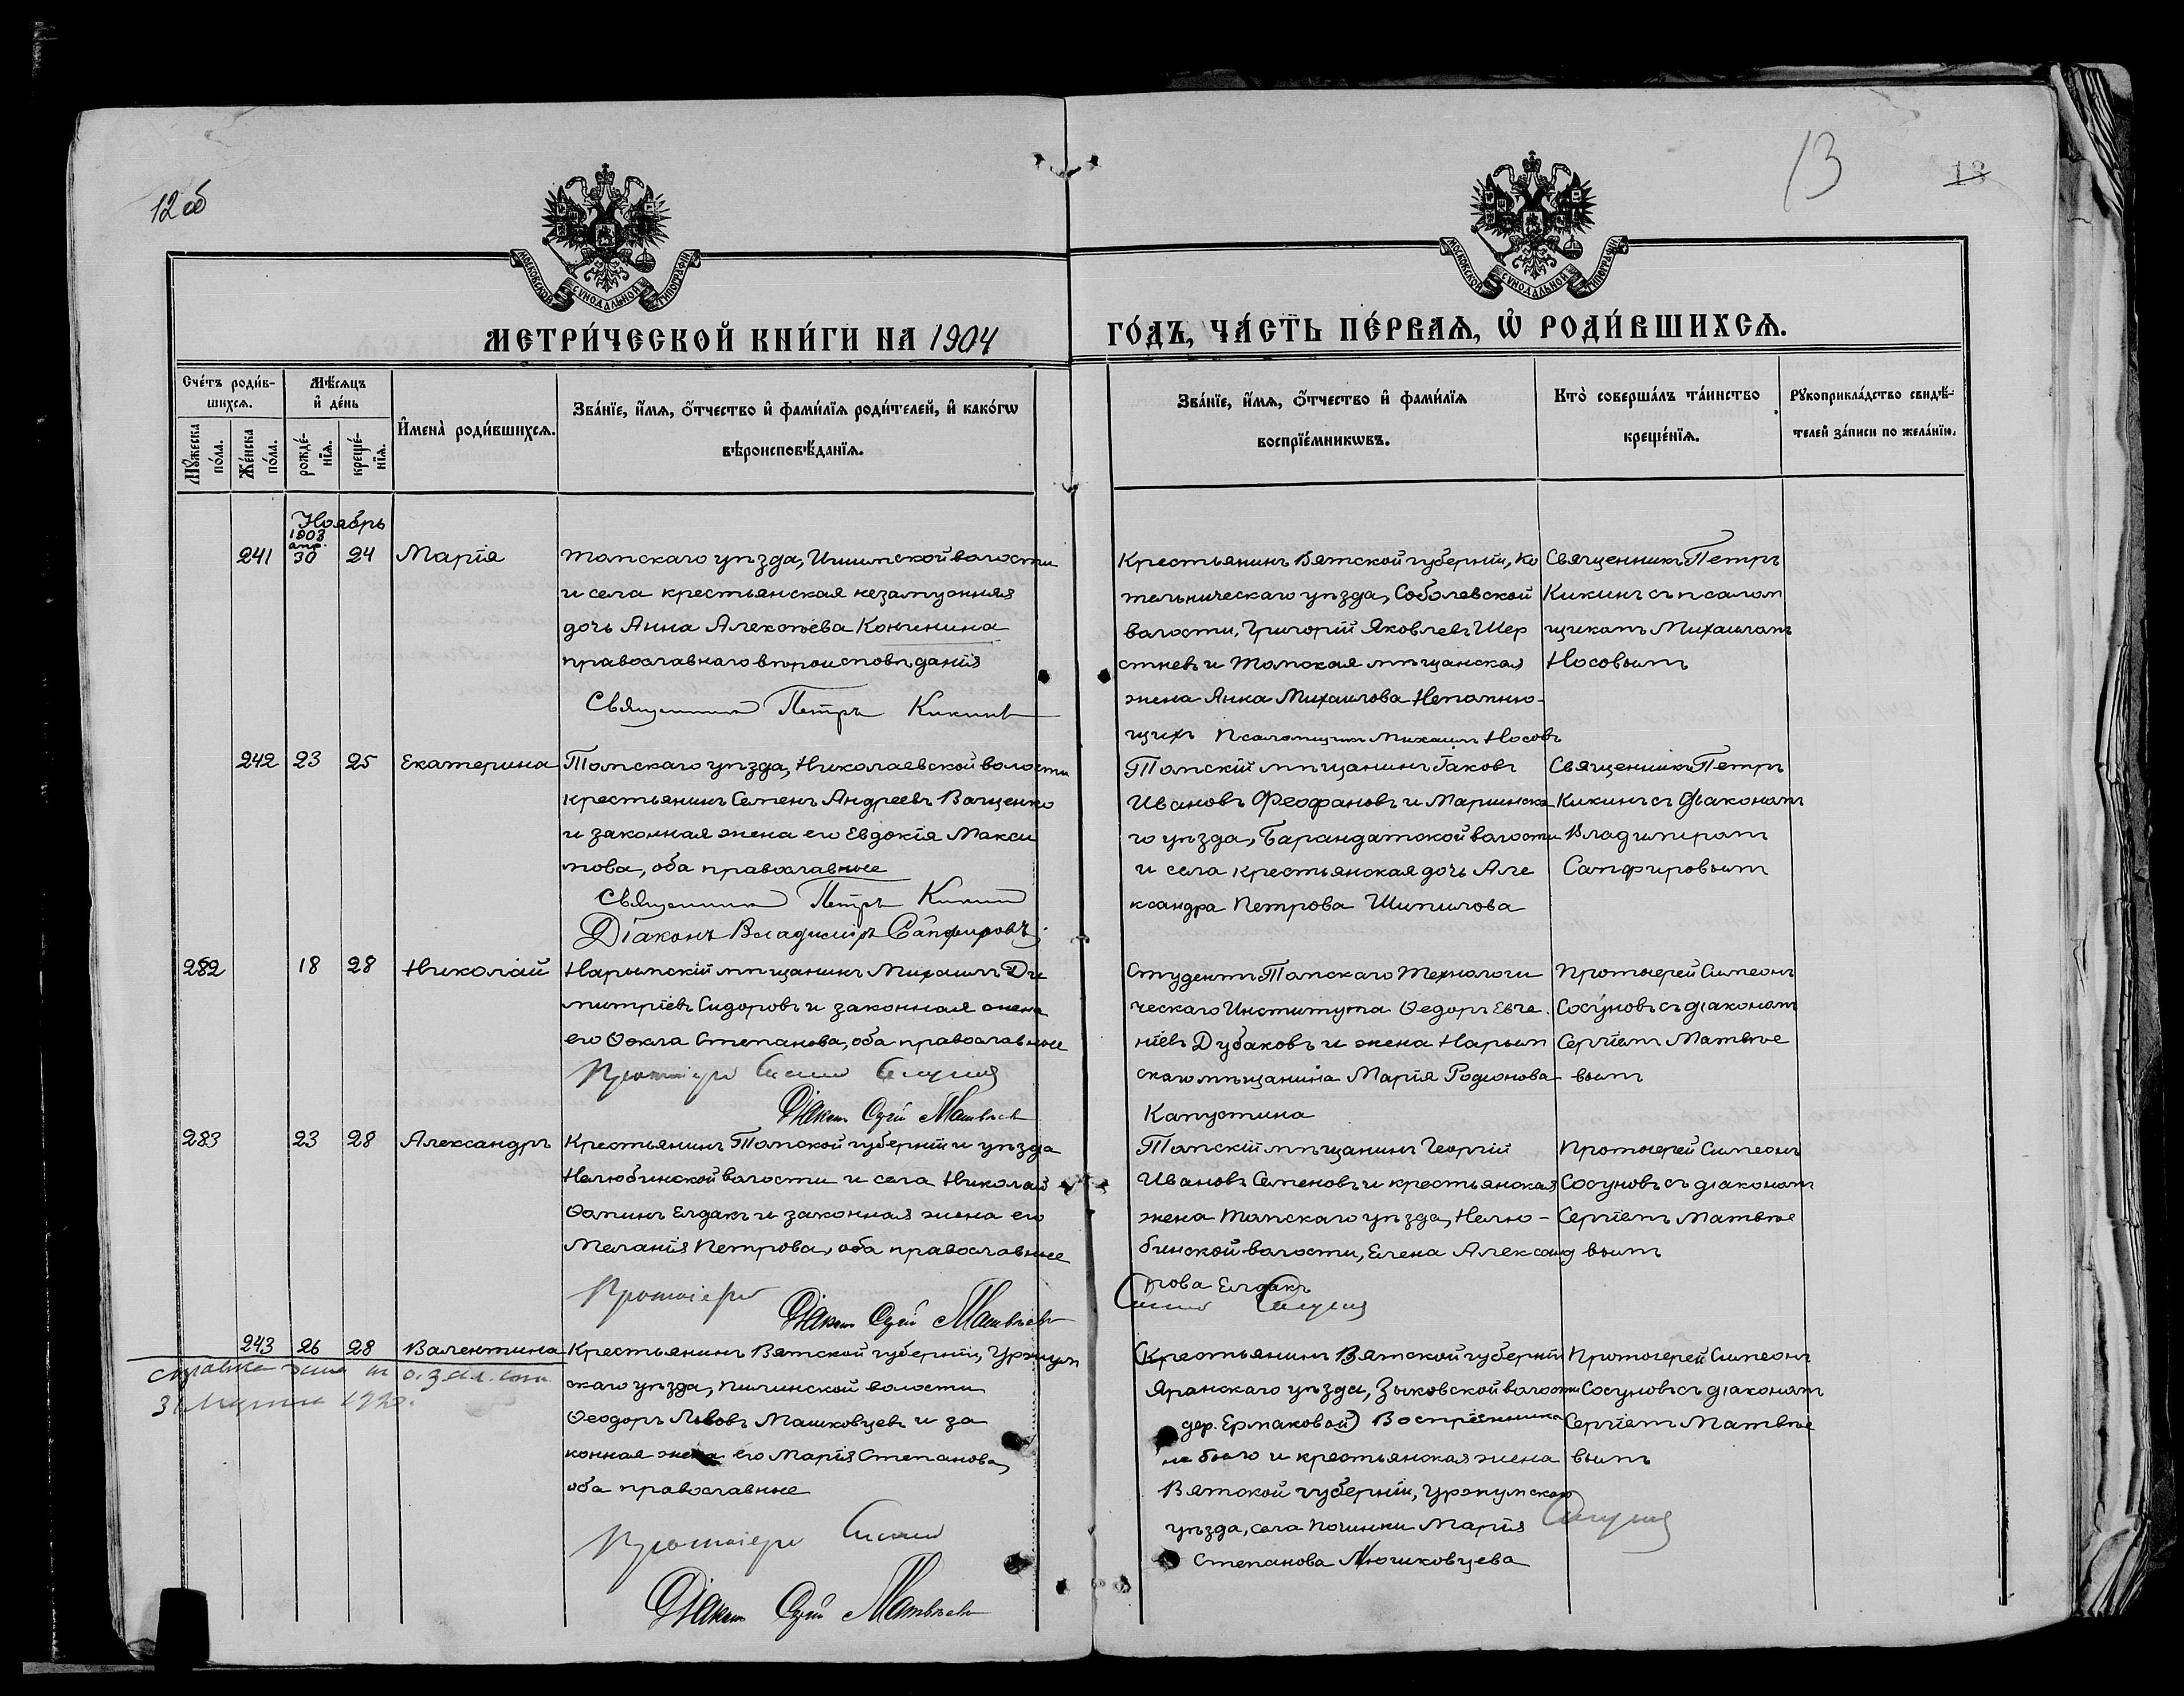 12 об
13
13
МОСКОВСКОЙ СѴНОДАЛЬНОЙ ТИПОГРАФІИ
МОСКОВСКОЙ СѴНОДАЛЬНОЙ ТИПОГРАФІИ
МЕТРИ́ЧЕСКОЙ КНИ́ГИ НА 1904
ГО́ДЪ, ЧА́СТЬ ПЕ́РВАѦ, Ѡ҆ РОДИ́ВШИХСѦ.
Сче́тъ роди́в-
шихсѧ.
Мꙋ́жеска по́ла.
Же́нска по́ла.
Мѣ́сѧцъ
и҆ де́нь
рожде́-
нїѧ.
креще́-
нїѧ.
И҆мена̀ роди́вшихсѧ.
Зва́нїе, и҆́мѧ, ѻ҆́тчество и҆ фами́лїѧ роди́телей, и҆ како́гѡ
вѣроисповѣ́данїѧ.
Зва́нїе, и҆́мѧ, ѻ҆́тчество и҆ фами́лїѧ
воспрїе́мникѡвъ.
Кто̀ соверша́лъ та́инство
креще́нїѧ.
Рꙋкоприкла́дство свидѣ́-
телей за́писи по жела́нїю.
Ноябрь
1903
апр.
241 30 24 Марія
Томскаго уѣзда, Ишимской волости
и села крестьянская незамужняя
дочь Анна Алексѣева Кончинина
православнаго вѣроисповѣданія
Священникъ Петръ Кикинъ
Крестьянинъ Вятской губерніи, Ко
тельническаго уѣзда, Соболевской
волости, Григорій Яковлевъ Шер
стневъ и Томская мѣщанская
жена Анна Михаилова Непомню-
щихъ Псаломщикъ Михаилъ Носовъ
Священникъ Петръ
Кикинъ съ псалом
щикомъ Михаиломъ
Носовымъ
242 23 25 Екатерина
Томскаго уѣзда, Николаевской волости
крестьянинъ Семенъ Андреевъ Ващенко
и законная жена его Евдокія Макси
мова, оба православные
Священникъ Петръ Кикинъ
Діаконъ Владиміръ Сапфировъ
Томскій мѣщанинъ Іаковъ
Ивановъ Феофановъ и Маріинска
го уѣзда, Барандатской волости
и села крестьянская дочь Але
ксандра Петрова Шипилова
Священникъ Петръ
Кикинъ съ Діакономъ
Владимиромъ
Сапфировымъ
282 18 28 Николай
Нарымскій мѣщанинъ Михаилъ Ди
митріевъ Сидоровъ и законная жена
его Ѳекла Степанова, оба православные
Протоіерей Симеонъ Сосуновъ
Діаконъ Сергій Матвѣевъ
Студентъ Томскаго Технологи
ческаго Института Ѳедоръ Евге
ніевъ Дубаковъ и жена Нарым
скаго мѣщанина Марія Родіонова
Капустина
Протоіерей Симеонъ
Сосуновъ съ діакономъ
Сергіемъ Матвѣе
вымъ
283 23 28 Александръ
Крестьянинъ Томской губерніи и уѣзда
Нелюбинской волости и села Николай
Ѳоминъ Елдакъ и законная жена его
Меланія Петрова, оба православные
Протоіерей
Діаконъ Сергій Матвѣевъ
Томскій мѣщанинъ Георгій
Ивановъ Семеновъ и крестьянская
жена Томскаго уѣзда, Нелю-
бинской волости, Елена Александ
рова Елдакъ
Симеонъ Сосуновъ
Протоіерей Симеонъ
Сосуновъ съ діакономъ
Сергіемъ Матвѣе
вымъ
243 26 28 Валентина
справка
31 Марта 1920.
Крестьянинъ Вятской губерніи, Уржум
скаго уѣзда, Пилинской волости
Ѳеодоръ Львовъ Машковцевъ и за
конная жена его Марія Степанова,
оба православные
Протоіерей Симеонъ
Діаконъ Сергій Матвѣевъ
(Крестьянинъ Вятской губерніи
Яранскаго уѣзда, Зыковской волости
дер. Ермаковой) Воспріемника
не было и крестьянская жена
Вятской губерніи, Уржумскаго
уѣзда, села Починки Марія
Степанова Мючиковцева
Сосуновъ
Протоіерей Симеонъ
Сосуновъ съ діакономъ
Сергіемъ Матвѣе
вымъ